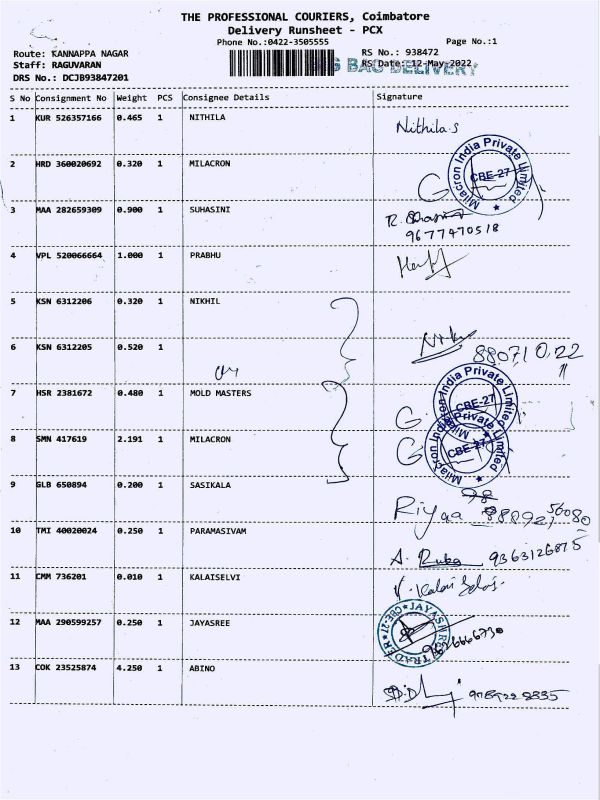 THE PROFESSIONAL COURIERS, Coimbatore
Delivery Runsheet - PCX
Phone No.:0422-3505555
Page No.:1
Route: KANNAPPA NAGAR
RS No.: 938472
Staff: RAGUVARAN
RS Date: 12-May-2022
BAG DELIVERY
DRS No.: DCJB93847201
S No Consignment No Weight PCS Consignee Details Signature
1 KUR 526357166 0.465 1 NITHILA
Nithila.S
2 HRD 360020692 0.320 1 MILACRON
Milacron India Private Limited
CBE-27
3 MAA 282659309 0.900 1 SUHASINI
9677470518
4 VPL 520066664 1.000 1 PRABHU
5 KSN 6312206 0.320 1 NIKHIL
6 KSN 6312205 0.520 1
7 HSR 2381672 0.480 1 MOLD MASTERS
Milacron India Private Limited
CBE-27
8 SMN 417619 2.191 1 MILACRON
Milacron India Private Limited
CBE-27
9 GLB 650894 0.200 1 SASIKALA
Riyaa
10 TMI 40020024 0.250 1 PARAMASIVAM
A. 9363126875
11 CMM 736201 0.010 1 KALAISELVI
V. Kalai Selvi.
12 MAA 290599257 0.250 1 JAYASREE
CBE-27
13 COK 23525874 4.250 1 ABINO